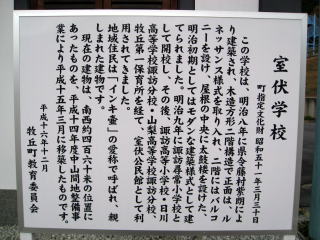 室伏学校
町指定文化財 昭和五十一年三月三十日
この学校は、明治八年に県令藤村紫朗によ
り建築され、木造方形二階構造で正面は、ル
ネッサンス様式を取り入れ、二階にはバルコ
ニーを設け、屋根の中央に太鼓楼を設けた、
明治初期としてはモダンな建築様式として建
てられました。明治九年に諏訪尋常小学校と
して開校し、その後、諏訪高等小学校・日川
高等学校諏訪分校・山梨高等学校諏訪分校、
牧丘第一保育所を経て、室伏公民館として利
用されてきました。
地域住民は「インキ壷」の愛称で呼ばれ、親
しまれた建物です。
現在の建物は、南西約四百六十米の位置に
あったものを、平成十四年度中山間地整備事
業により平成十五年三月に移築したものです。
平成十六年十二月
牧丘町教育委員会